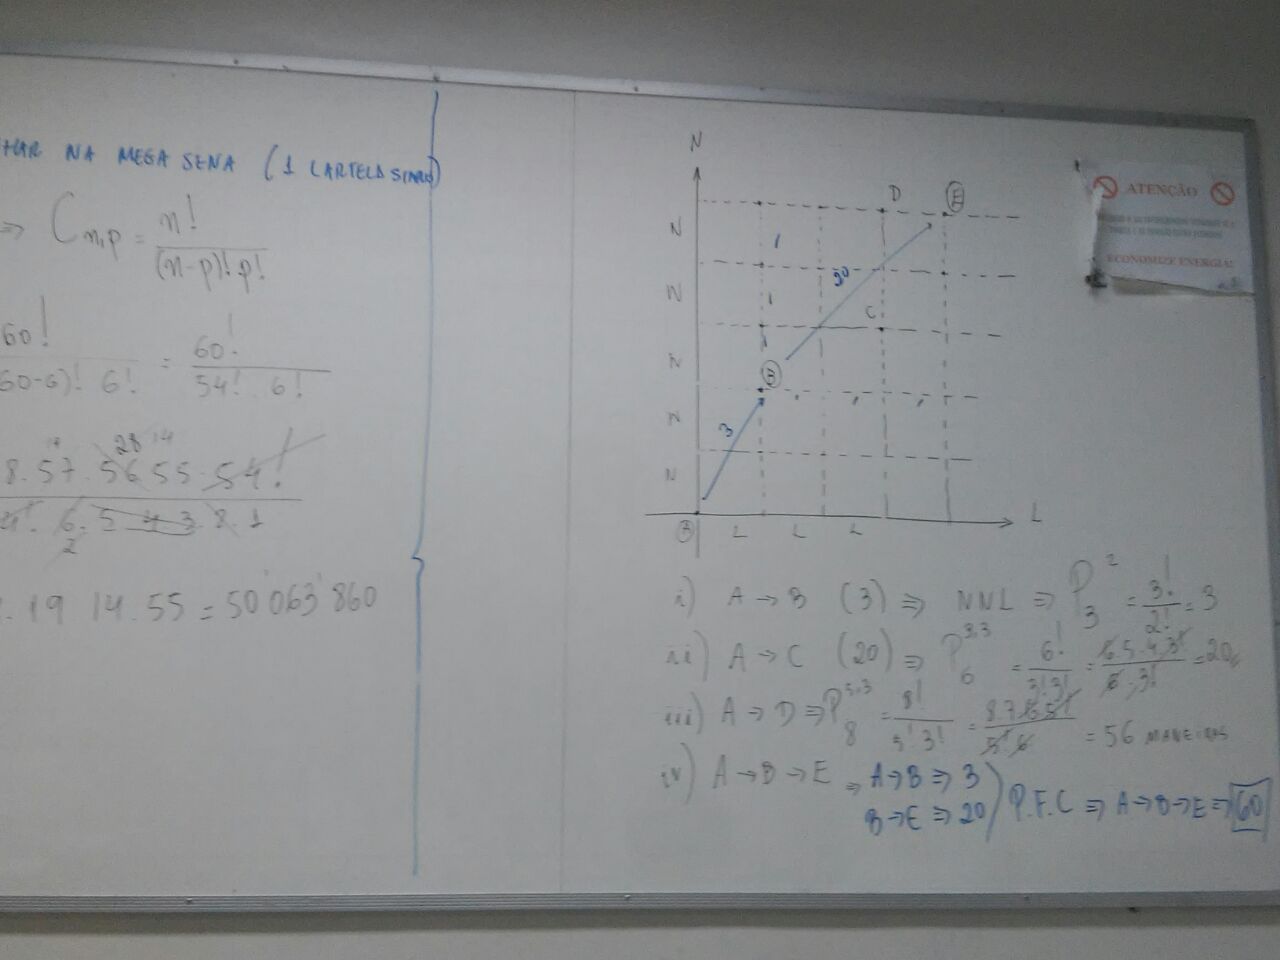 NA MEGA SENA (1 CARTELA
⇒ C n,p = n! / (n-p)! p!
60! / (60-6)! 6! = 60! / 54! 6!
8.57.56 55.54!
28 14
6.5 4 3 2.1
2
.19 14.55 = 50 063 860
N
D E
N
1
20
N
1
C
N
1
B
N
3
N
A L L L L
i) A → B (3) ⇒ NNL ⇒ P 3 2 = 3! / 2! = 3
ii) A → C (20) ⇒ P 6 3,3 = 6! / 3! 3! = 6 5.4.3! / 6.3! = 20
iii) A → D ⇒ P 8 5,3 = 8! / 5! 3! = 8.7.6 5! / 5! 6 = 56 MANEIRAS
iv) A → B → E ⇒ A → B ⇒ 3
B → E ⇒ 20 ) P.F.C ⇒ A → B → E ⇒ 60
ATENÇÃO
ECONOMIZE ENERGIA!